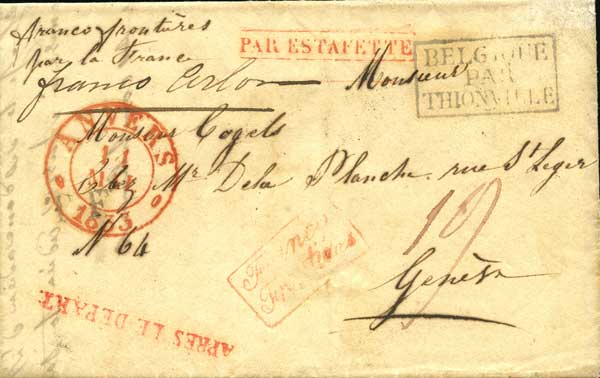 franco frontères
par la France
franco Arlon
PAR ESTAFETTE
BELGIQUE
PAR
THIONVILLE
Monsieur
ANVERS
1833
Monsieur Cogels
chez Mr Dela Planche, rue St Leger
N 64
Genève
APRÈS LE DÉPART.